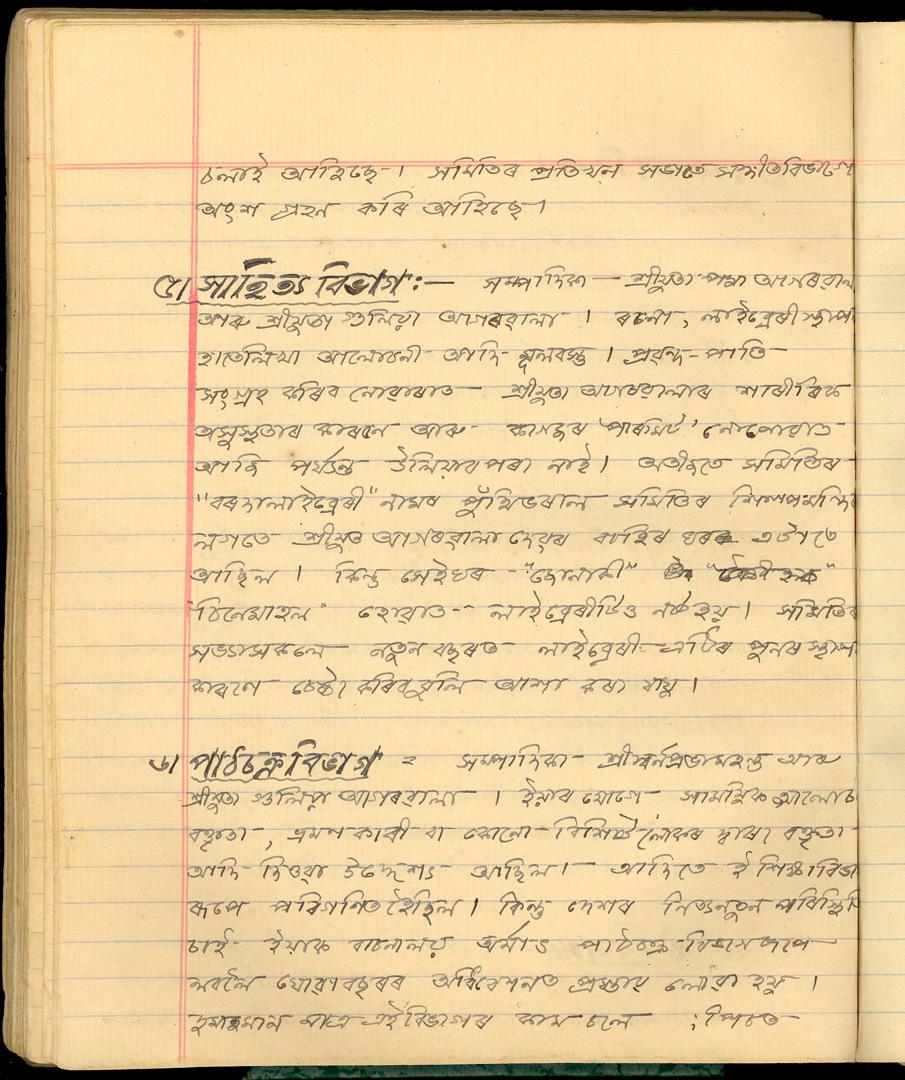 চলাই আহিছে। সমিতিৰ প্ৰতিখন সভাতে সঙ্গীতবিভাগে
অংশ গ্ৰহন কৰি আহিছে।
৫। সাহিত্য বিভাগ :— সম্পাদিকা — শ্ৰীযুতা পদ্মা আগৰৱাল
আৰু শ্ৰীযুতা গুলিয়া আগৰৱালা । ৰচনা, লাইব্ৰেৰী স্থাপ
হাতেলিখা আলোচনী আদি মূলবস্তু । প্ৰৱন্ধ-পাতি
সংগ্ৰহ কৰিব নোৱাৰাত শ্ৰীযুতা আগৰৱালাৰ শাৰীৰিক
অসুস্থতাৰ কাৰনে আৰু কাগজৰ 'পাৰমিট' নোপোৱাত
আজি পৰ্য্যন্ত উলিয়াব পৰা নাই। অতীজতে সমিতিৰ
"বৰদালাইব্ৰেৰী" নামৰ পুঁথিভৰাল সমিতিৰ শিল্পমন্দি
লগতে শ্ৰীযুত আগৰৱালা দেৱৰ বাহিৰ ঘৰৰ এটাতে
আছিল । কিন্তু সেইঘৰ "জোনাকী"
"চিনেমাহল" হোৱাত লাইব্ৰেৰীটিও নষ্ট হয়। সমিতিৰ
সভ্যাসকলে নতুন বছৰত লাইব্ৰেৰী এটিৰ পুনৰ স্থাপ
কাৰণে চেষ্টা কৰিব বুলি আশা কৰা যায় ।
৬। পাঠচক্ৰ বিভাগ = সম্পাদিকা শ্ৰীস্বৰ্নপ্ৰভা মহন্ত আৰু
শ্ৰীযুতা গুলিয়া আগৰৱালা । ইয়াৰ যোগে সাময়িক আলোচ
বক্তৃতা, ভ্ৰমণকাৰী বা কোনো বিশিষ্ট লোকৰ দ্বাৰা বক্তৃতা
আদি দিওৱা উদ্দেশ্য আছিল। আদিতে ই শিক্ষা বিভা
ৰূপে পৰিগনিত হৈছিল। কিন্তু দেশৰ নিত্যনতুন পৰিস্থি
চাই ইয়াক ৰাচনালয় অৰ্থাৎ পাঠচক্ৰ বিভাগ ৰূপে
লবলৈ যোৱা বছৰৰ অধিবেশনত প্ৰস্তাৱ লোৱা হয় ।
দুমাহমান মাত্ৰ এই বিভাগৰ কাম চলে ; পিচত